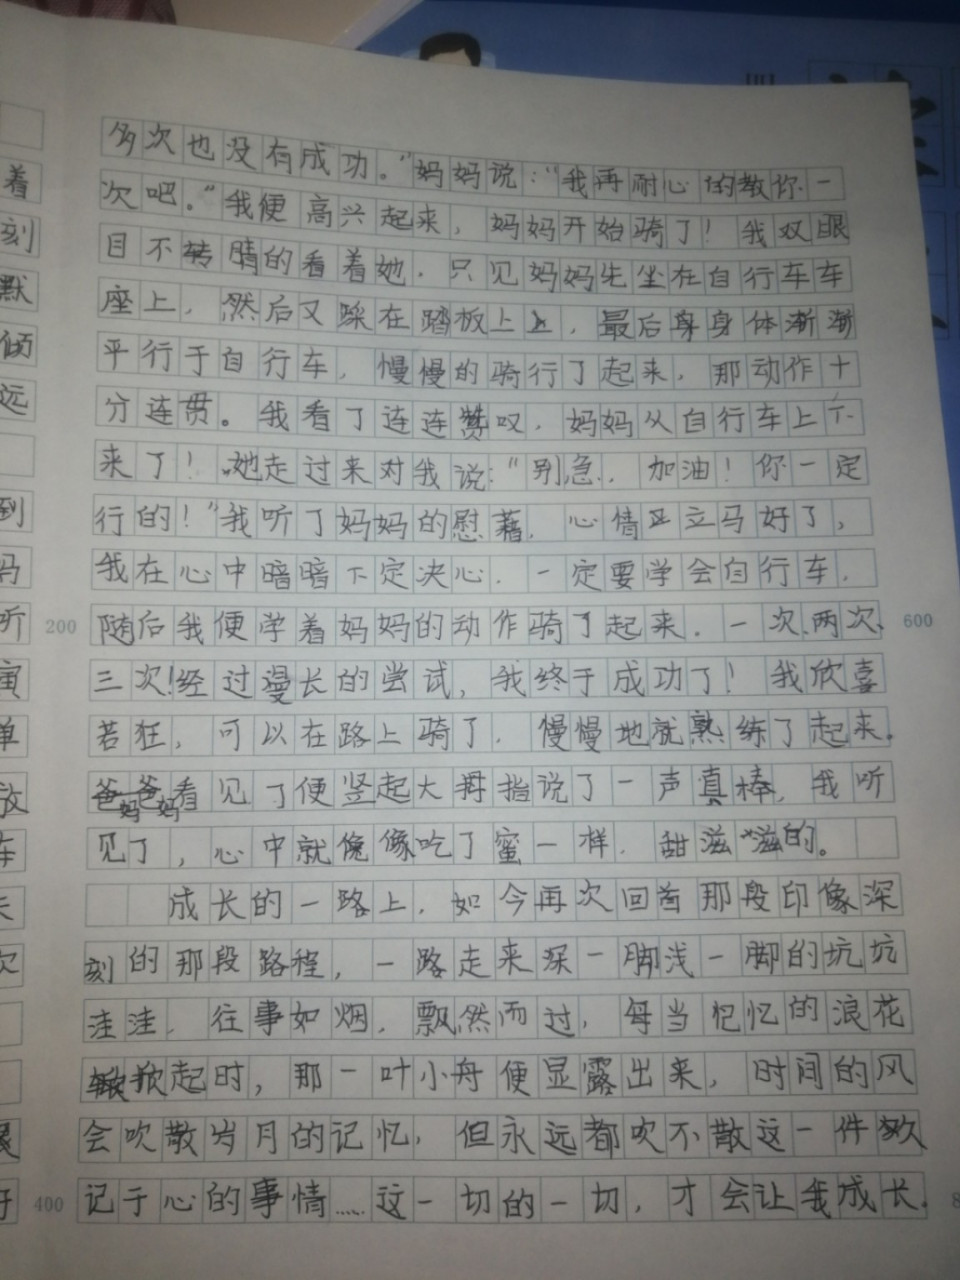 多次也没有成功。”妈妈说：“我再耐心的教你一
次吧。“我便高兴起来，妈妈开始骑了！我双眼
目不转睛的看着她，只见妈妈先坐在自行车车
座上，然后又踩在踏板上，最后身体渐渐
平行于自行车，慢慢的骑行了起来，那动作十
分连贯。我看了连连赞叹，妈妈从自行车上下
来了！她走过来对我说：“别急，加油！你一定
行的！”我听了妈妈的慰藉，心情立马好了，
我在心中暗暗下定决心，一定要学会自行车，
随后我便学着妈妈的动作骑了起来，一次、两次、
三次！经过漫长的尝试，我终于成功了！我欣喜
若狂，可以在路上骑了，慢慢地就熟练了起来。
妈妈看见了便竖起大拇指说了一声真棒，我听
见了，心中就像吃了蜜一样，甜滋滋的。
成长的一路上，如今再次回首那段印像深
刻的那段路程，一路走来深一脚浅一脚的坑坑
洼洼，往事如烟，飘然而过，每当记忆的浪花
掀起时，那一叶小舟便显露出来，时间的风
会吹散岁月的记忆，但永远都吹不散这一件
记于心的事情……这一切的一切，才会让我成长。
着
刻
默
倾
远
到
妈
听
单
放
车
次
200
400
600